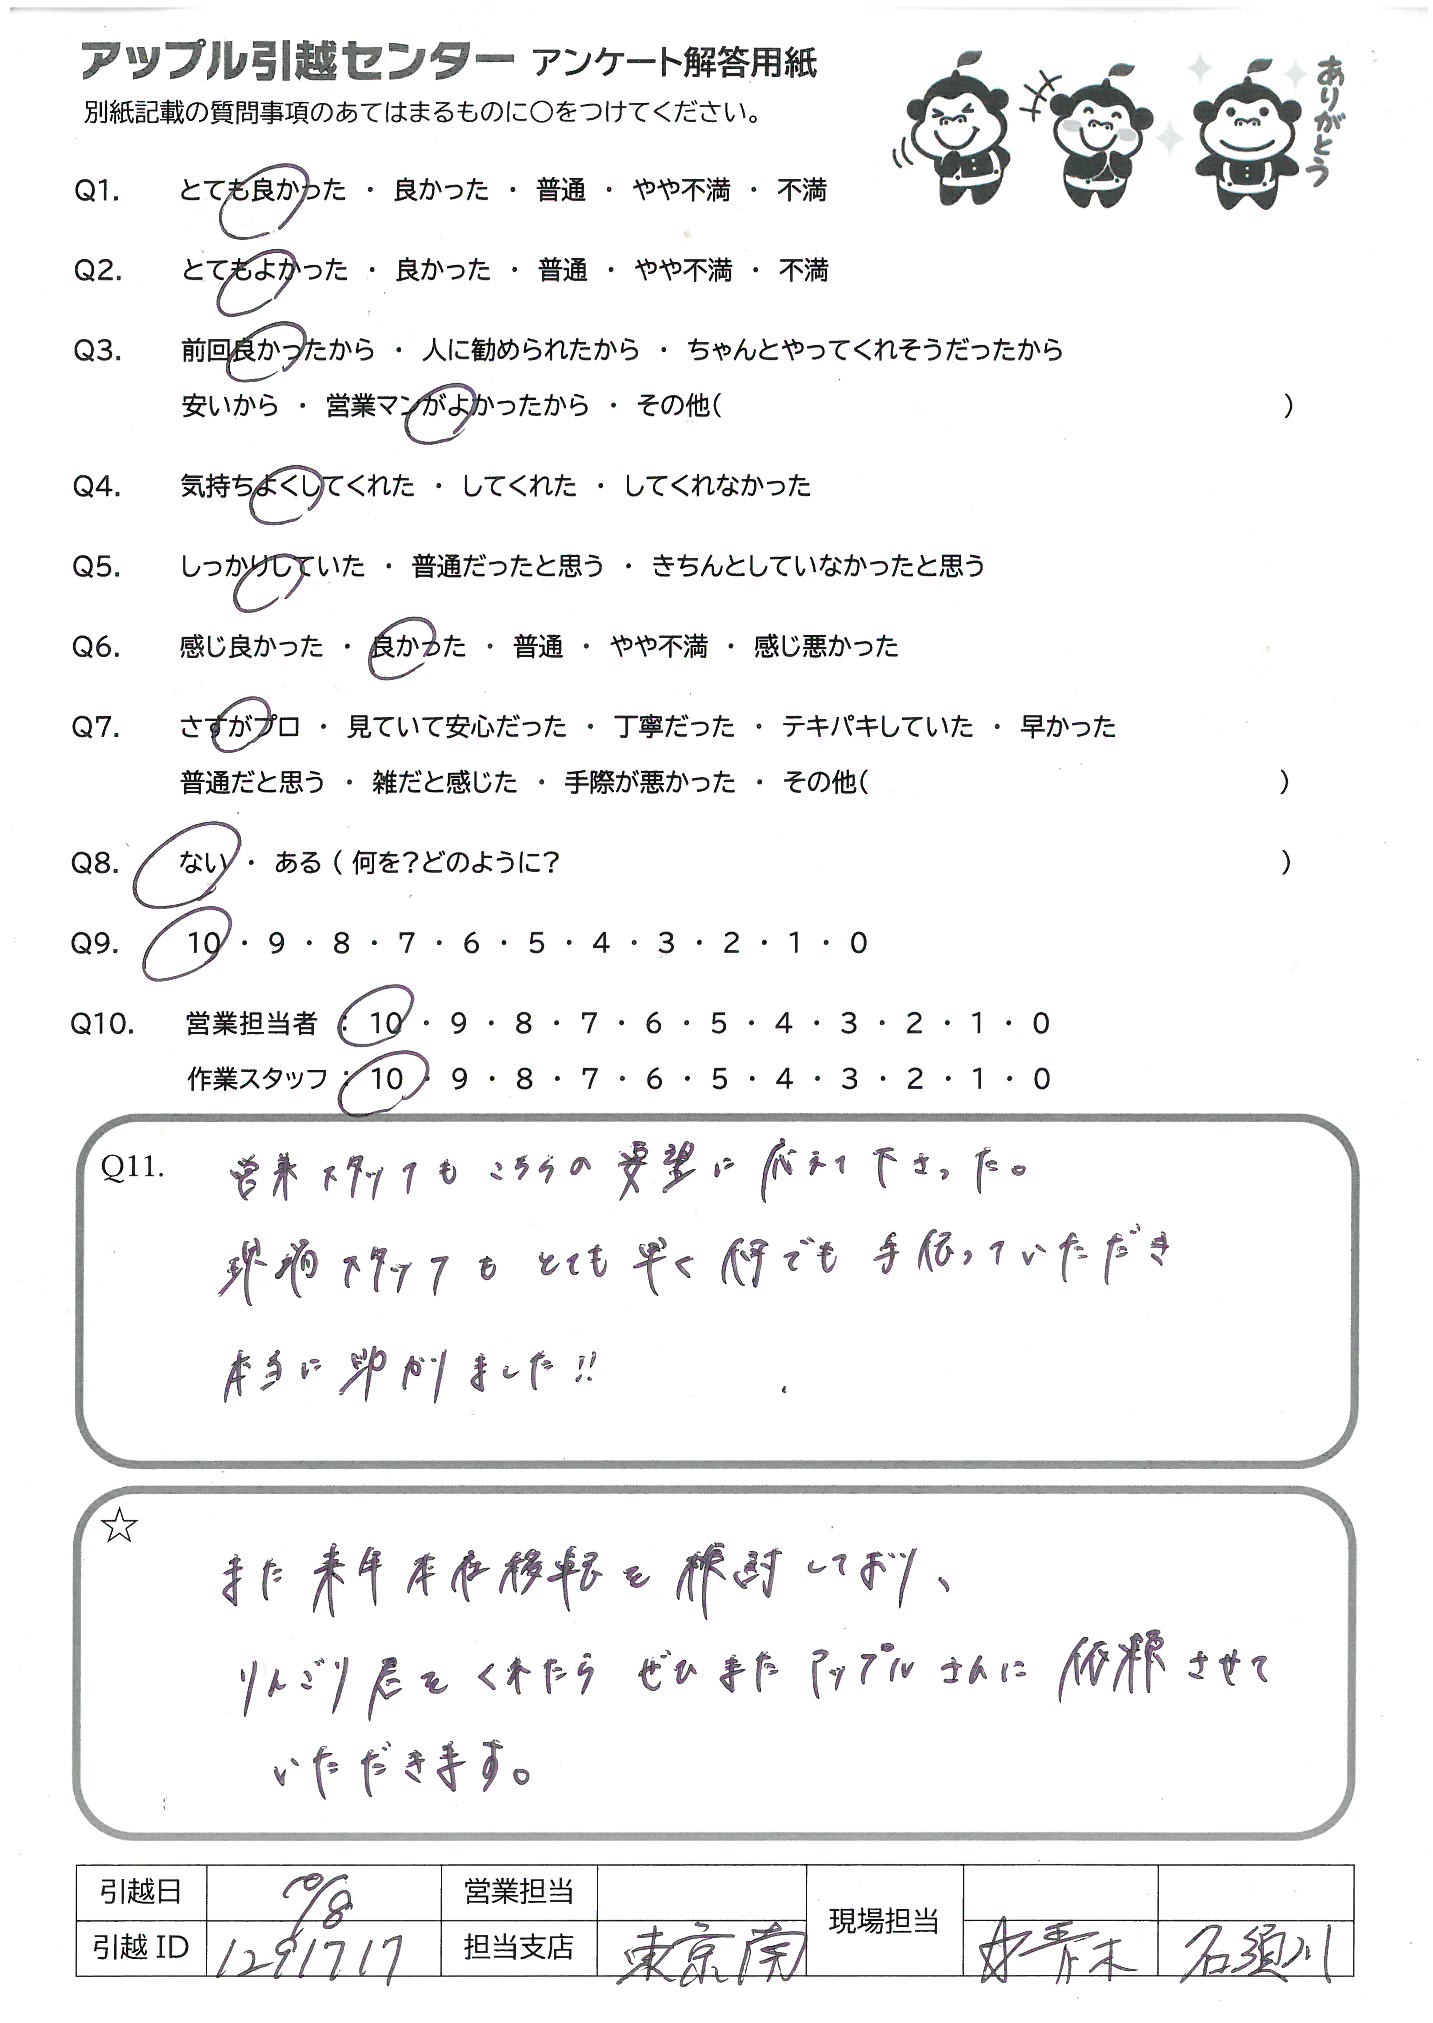 アップル引越センター アンケート解答用紙
別紙記載の質問事項のあてはまるものに〇をつけてください。
ありがとう
Q1. とても良かった ・ 良かった ・ 普通 ・ やや不満 ・ 不満
Q2. とてもよかった ・ 良かった ・ 普通 ・ やや不満 ・ 不満
Q3. 前回良かったから ・ 人に勧められたから ・ ちゃんとやってくれそうだったから
安いから ・ 営業マンがよかったから ・ その他( )
Q4. 気持ちよくしてくれた ・ してくれた ・ してくれなかった
Q5. しっかりしていた ・ 普通だったと思う ・ きちんとしていなかったと思う
Q6. 感じ良かった ・ 良かった ・ 普通 ・ やや不満 ・ 感じ悪かった
Q7. さすがプロ ・ 見ていて安心だった ・ 丁寧だった ・ テキパキしていた ・ 早かった
普通だと思う ・ 雑だと感じた ・ 手際が悪かった ・ その他( )
Q8. ない ・ ある ( 何を?どのように? )
Q9. 10 ・ 9 ・ 8 ・ 7 ・ 6 ・ 5 ・ 4 ・ 3 ・ 2 ・ 1 ・ 0
Q10. 営業担当者 : 10 ・ 9 ・ 8 ・ 7 ・ 6 ・ 5 ・ 4 ・ 3 ・ 2 ・ 1 ・ 0
作業スタッフ : 10 ・ 9 ・ 8 ・ 7 ・ 6 ・ 5 ・ 4 ・ 3 ・ 2 ・ 1 ・ 0
Q11. 営業スタッフもこちらの要望に応えて下さった。
現場スタッフもとても早く何でも手伝っていただき
本当に助かりました!!
☆
また来年本店移転を検討しており、
りんごり君をくれたらぜひまたアップルさんに依頼させて
いただきます。
引越日 10/8 営業担当 現場担当
引越 ID 1291717 担当支店 東京南 青木 石須川